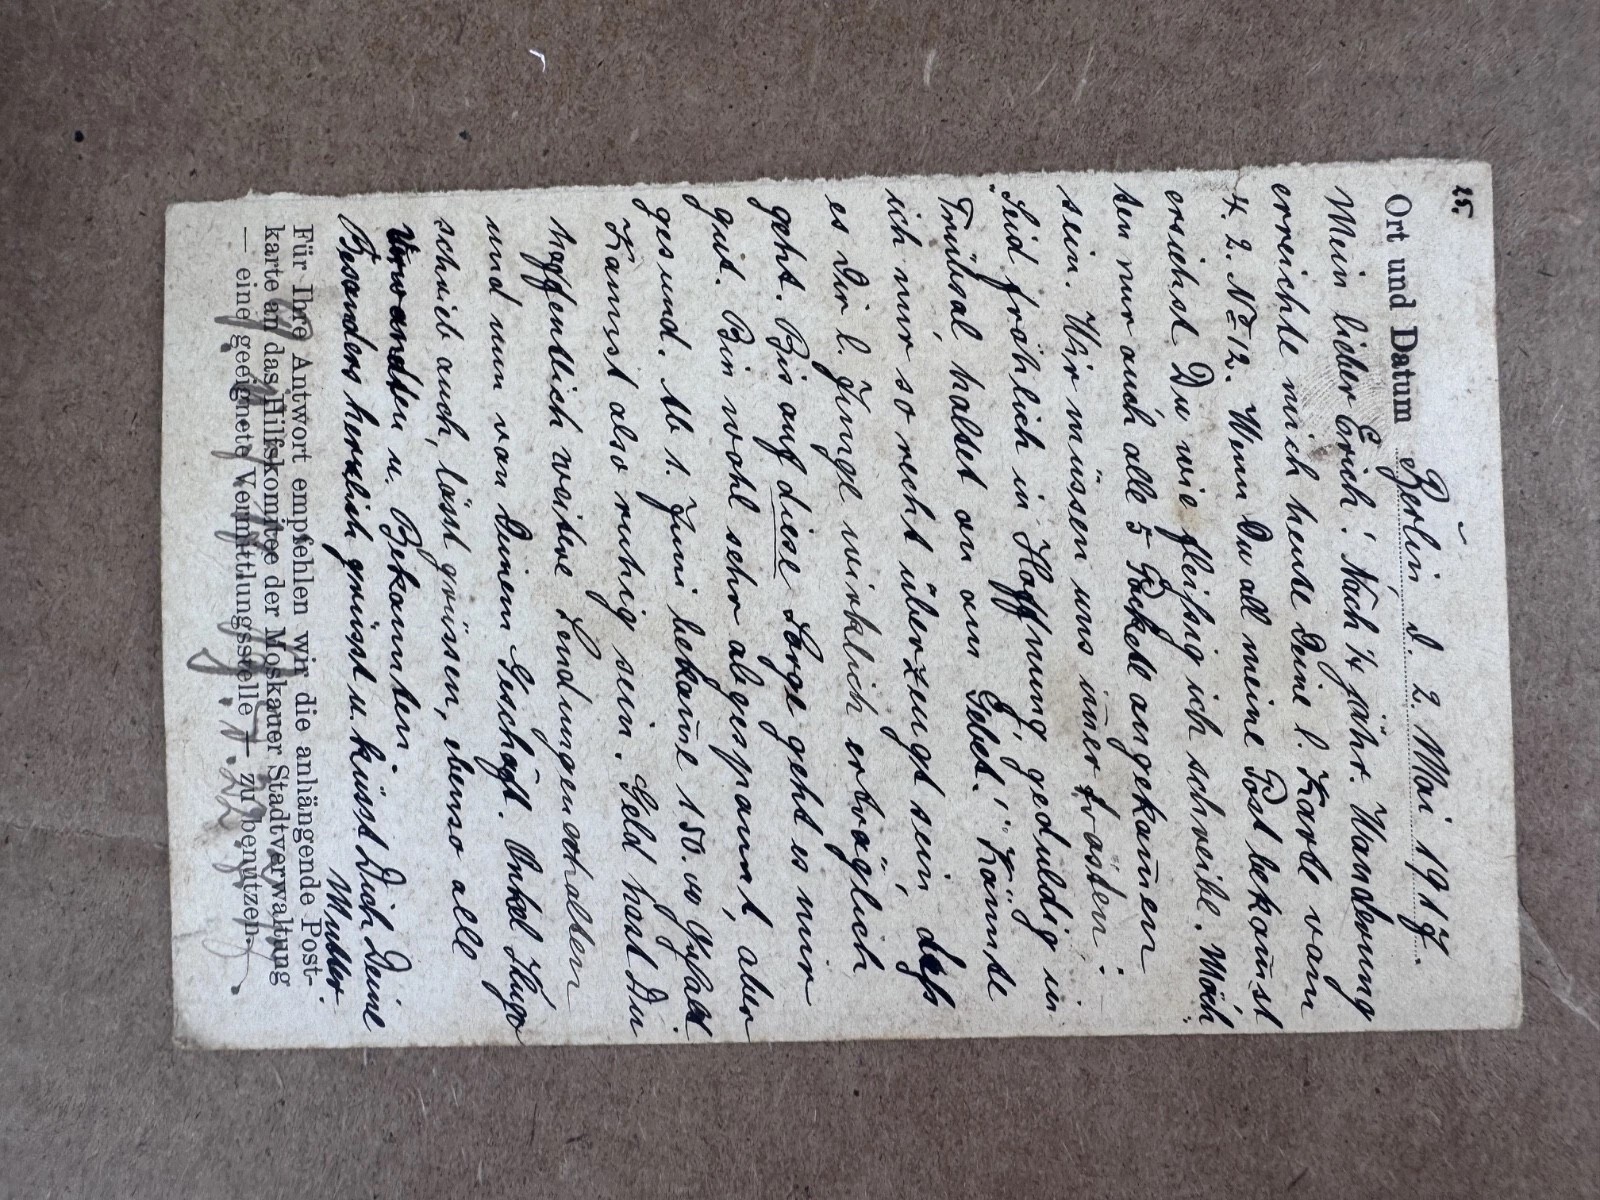 15.
Ort und Datum Berlin, d. 2. Mai 1917.
Mein lieber Erich! Nach ¼ jähr. Wanderung
erreichte mich heute Deine l. Karte vom
4. 2. No 12. Wenn Du all meine Post bekom̄st
ersiehst Du wie fleißig ich schreibe. Möch
ten nur auch alle 5 Packete angekom̄en
sein. Wir müssen uns im̄er trösten:
"Seid fröhlich in Hoffnung, geduldig in
Trübsal, haltet an am Gebet." Kön̄te
ich nur so recht überzeugt sein, daß
es Dir l. Junge wirklich erträglich
geht. Bis auf diese Sorge geht es mir
gut. Bin wohl sehr abgespannt, aber
gesund. Ab 1. Juni bekom̄e 150. Gehalt
Kannst also ruhig sein. Geld hast Du
hoffentlich weitere Sendungen erhalten
und nun von Deinem Geschäft. Onkel Hugo
schrieb auch, lässt grüssen, ebenso alle
Verwandten u. Bekannten.
Besonders herzlich grüsst u. küsst Dich Deine
Mutter.
Für Ihre Antwort empfehlen wir die anhängende Post-
karte an das Hilfskomitee der Moskauer Stadtverwaltung
— eine geeignete Vermittlungsstelle — zu benutzen.